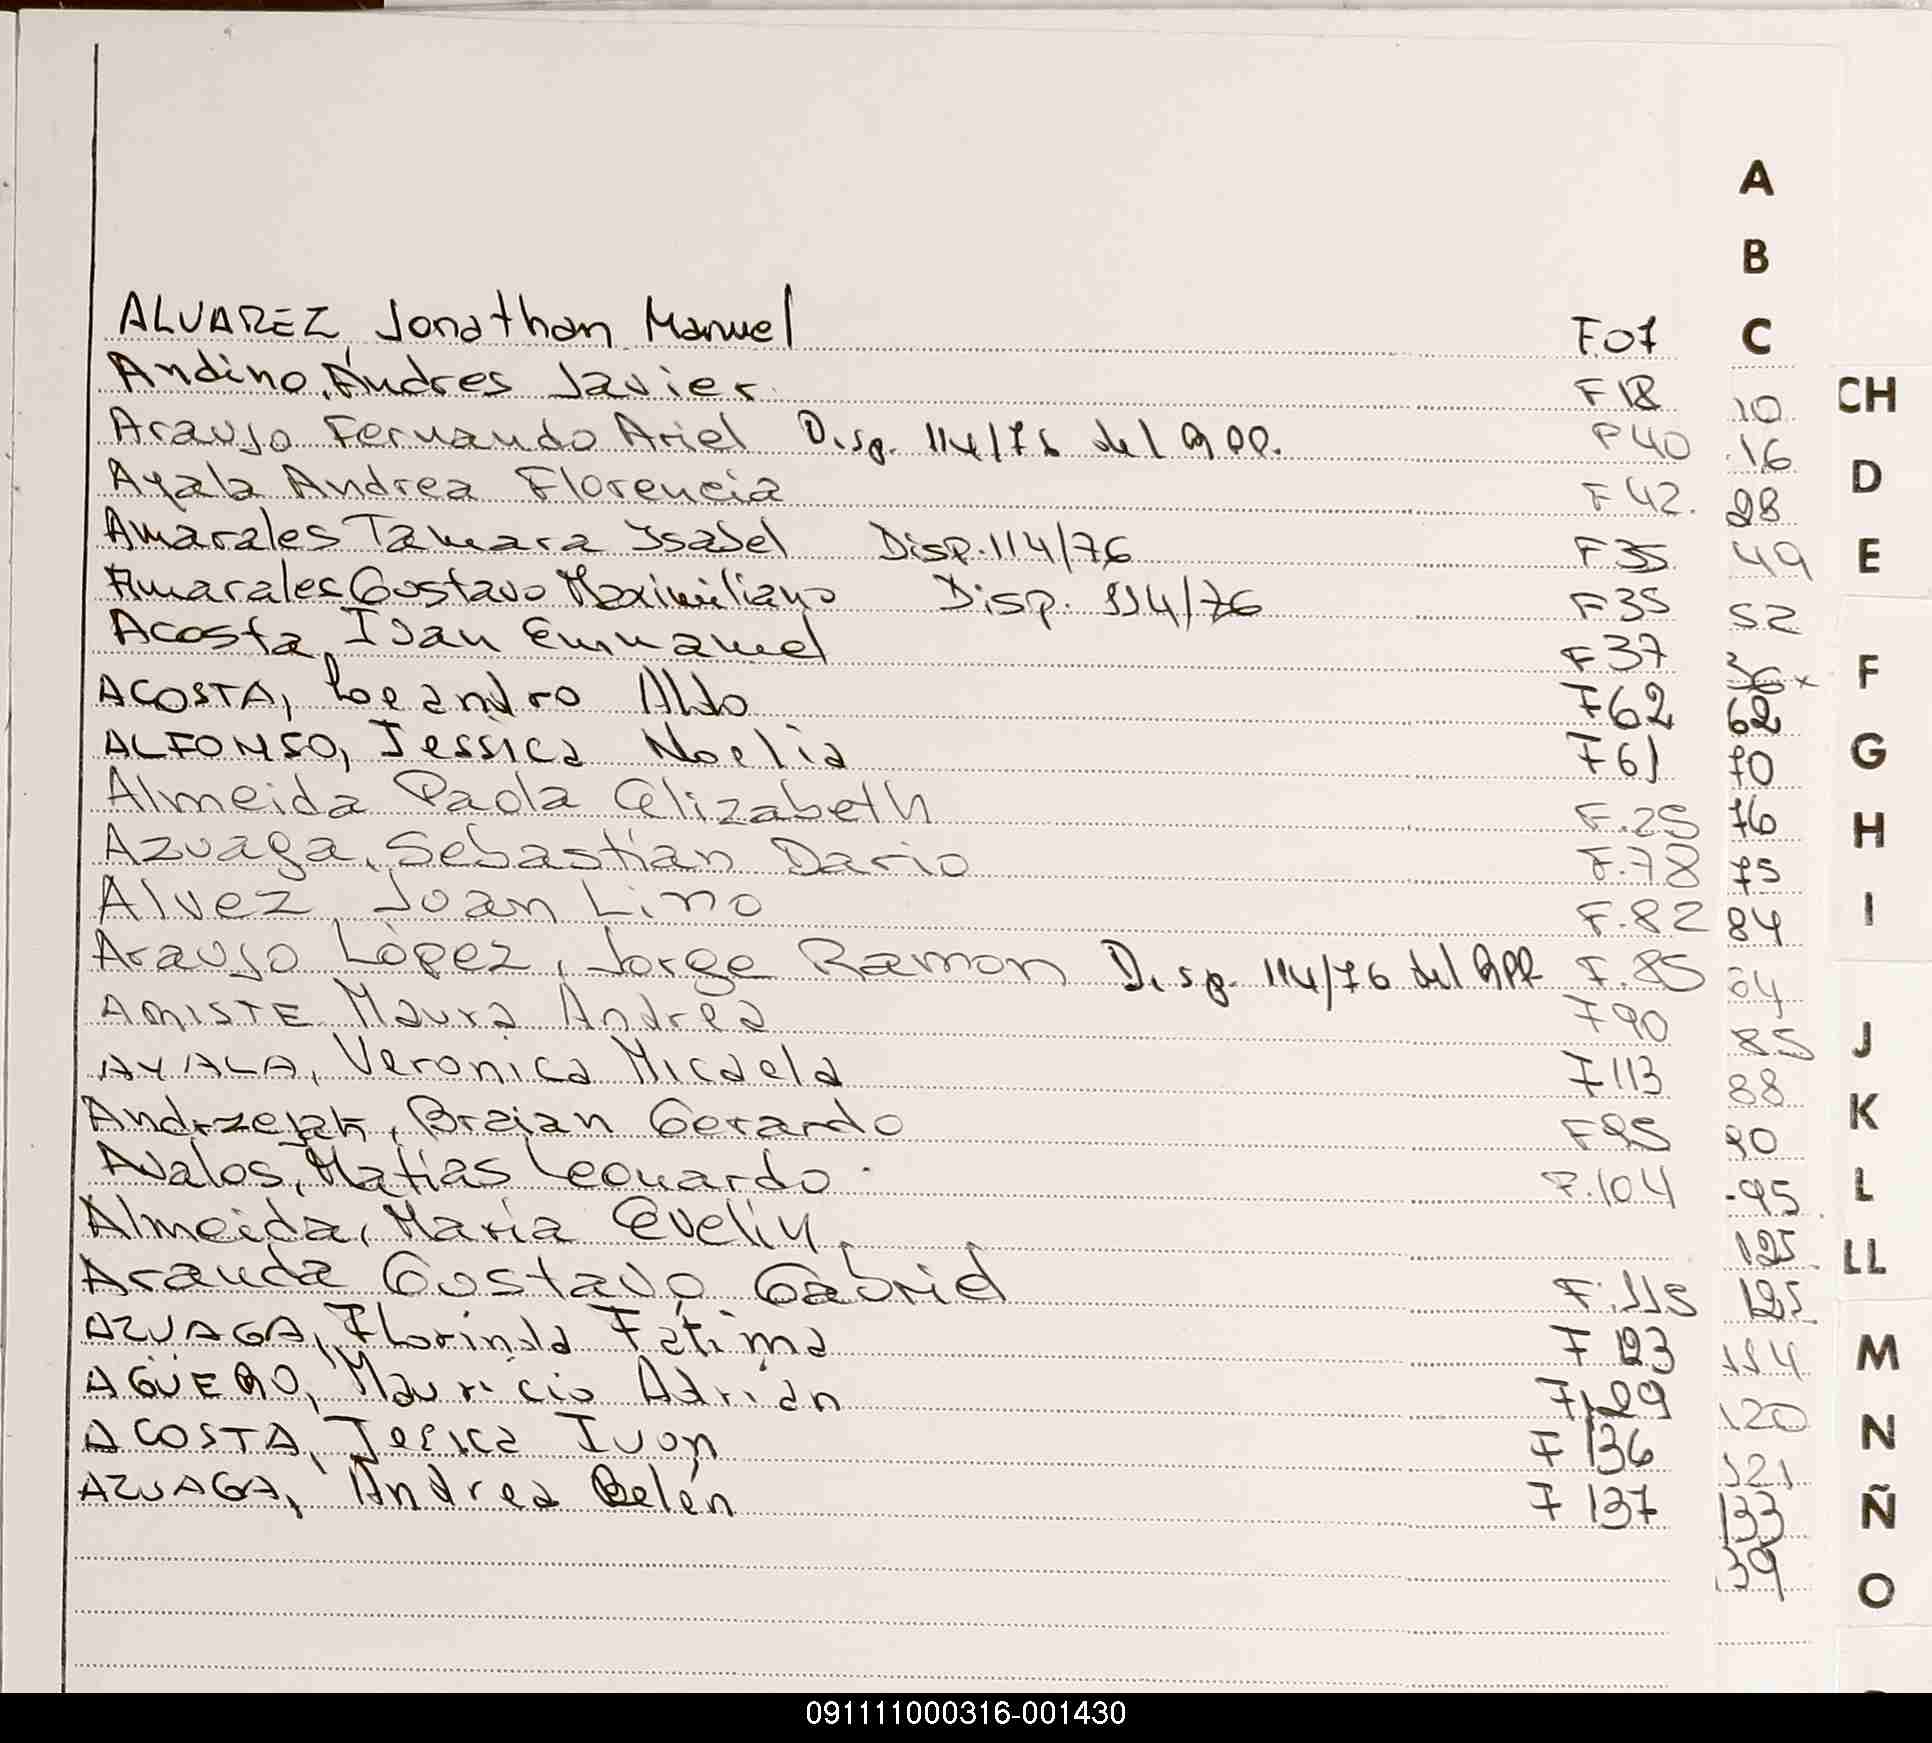 A
B
C
ALVAREZ, Jonathan Manuel F.07
Andino, Andres Javier F 18 10 CH
Araujo Fernando Ariel Disp. 114/76 del RPP. F 40 16
Ayala Andrea Florencia F 42. 28 D
Amarales Tamara Isabel Disp. 114/76 F 35 49 E
Amarales Gustavo Maximiliano Disp. 114/76 F 35 52
Acosta, Ivan Emmanuel F 37 F
ACOSTA, Leandro Aldo F 62 62
ALFONSO, Jessica Noelia F 61 70 G
Almeida Paola Elizabeth F.25 76 H
Azuaga, Sebastián Dario F.78 75
Alvez, Joan Lino F.82 84 I
Araujo López, Jorge Ramon Disp. 114/76 del RPP F.85 64
ARISTE Maura Andrea F 90 85 J
AYALA, Veronica Micaela F 113 88
Andrzejak, Braian Gerardo F 95 90 K
Avalos, Matias Leonardo. F.104 95 L
Almeida, Maria Evelin 125 LL
Aranda Gustavo Gabriel F.115 125
AZUAGA, Florinda Fatima F 123 114 M
AGÜERO, Mauricio Adrián F 129 120 N
ACOSTA, Jesica Ivon F 136 121
AZUAGA, Andrea Belén F 137 133 Ñ
139 O
091111000316-001430